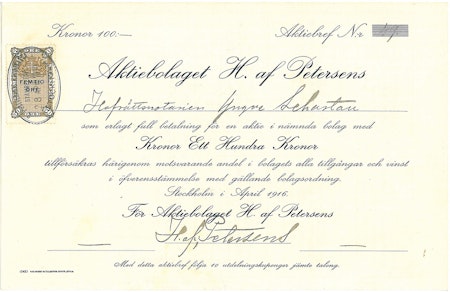 Kronor 100:— Aktiebref N:r
Aktiebolaget H. af Petersens
FEMTIO
ÖRE
Hofrättsnotarien Yngve Schartau
som erlagt full betalning för en aktie i nämnda bolag med
Kronor Ett Hundra Kronor
tillförsäkras härigenom motsvarande andel i bolagets alla tillgångar och vinst
i öfverensstämmelse med gällande bolagsordning.
Stockholm i April 1916.
För Aktiebolaget H. af Petersens
H. af Petersens
Med detta aktiebref följa 10 utdelningskuponger jämte talong.